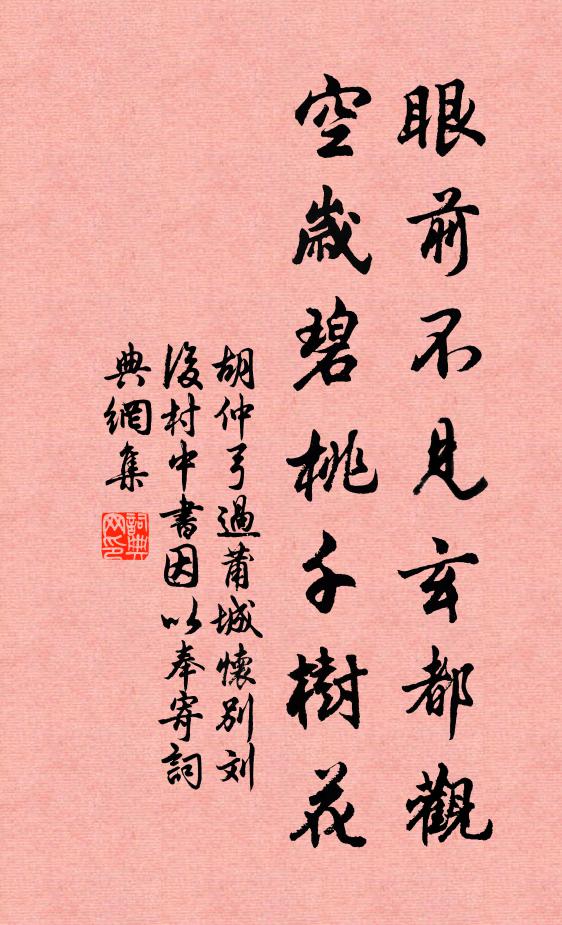 眼前不見玄都觀
空歲碧桃千樹花
胡仲弓過莆城懷別刘
後村中書因以奉寄詞
典網集
詞典网印